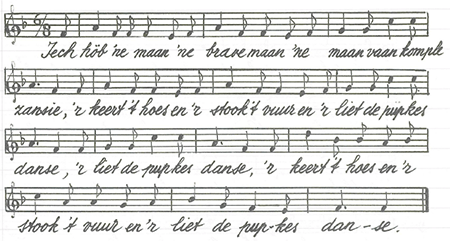 Jech höb 'ne maan 'ne brave maan 'ne maan vaan komple
zansie, 'r keert 't hoes en 'r stook 't vuur en 'r liet de pijpkes
danse, 'r liet de pupkes danse, 'r keert 't hoes en 'r
stook 't vuur en 'r liet de pup-kes dan-se.